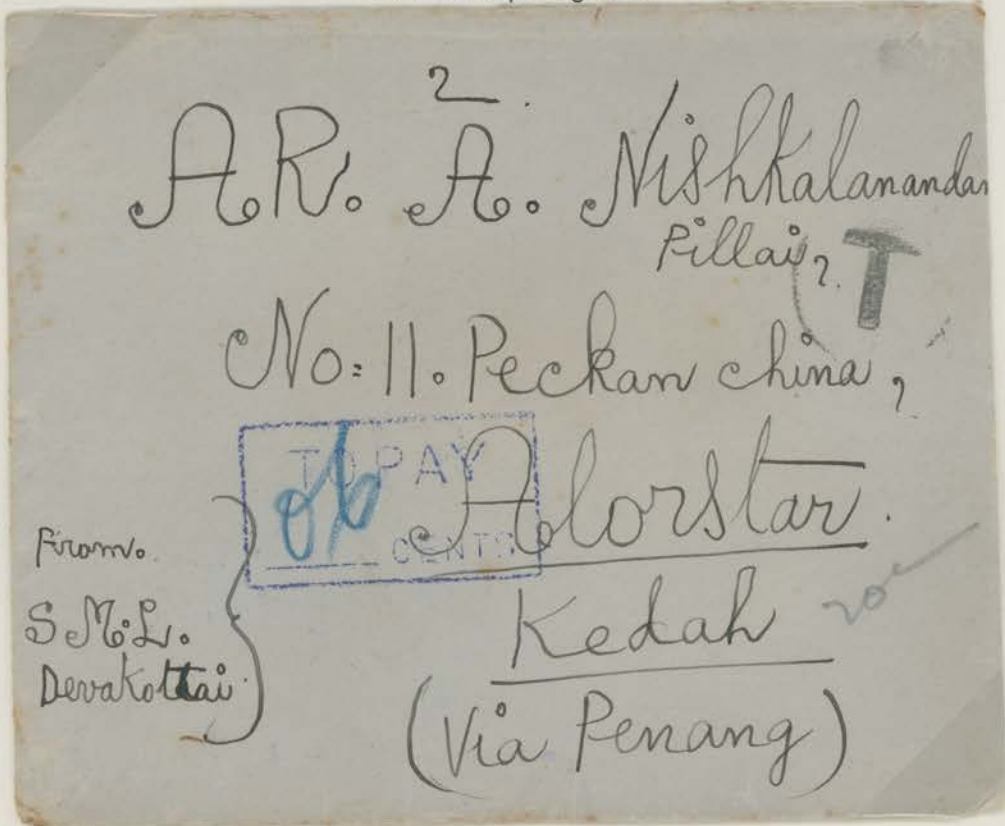 2.
AR. A. Nishkalanandan
Pillai,
T
No: 11. Peckan china,
TO PAY
CENTS
Alorstar.
Kedah
(Via Penang)
From.
S M. L.
Devakottai.